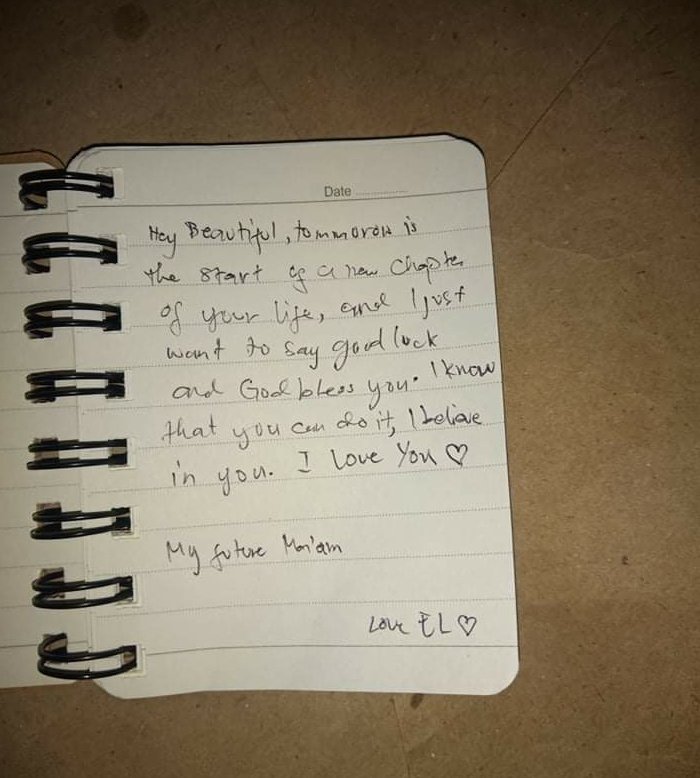 Date ................
Hey Beautiful, tommorow is
the start of a new Chapter
of your life, and I just
want to say good luck
and God bless you. I know
that you can do it, I believe
in you. I Love You ♡
My future Ma'am
Love EL ♡